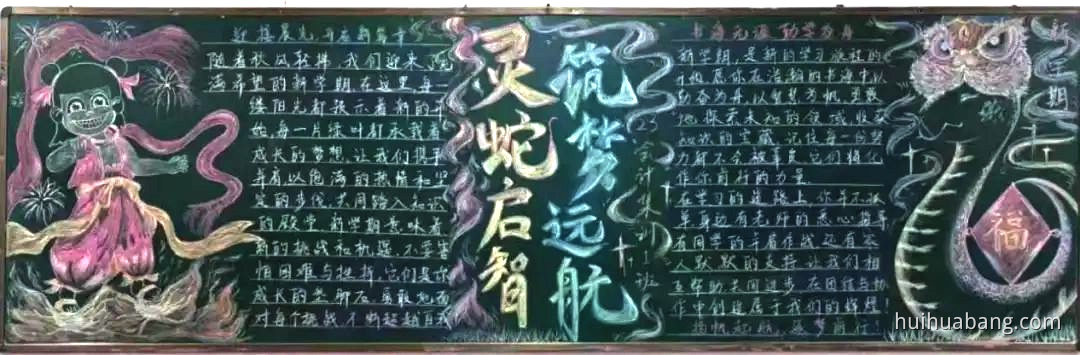 迎接晨光 开启新篇章
随着秋风轻拂,我们迎来了充
满希望的新学期。在这里,每一
缕阳光都预示着新的开
始,每一片绿叶都承载着
成长的梦想。让我们携手
并肩,以饱满的热情和坚
定的步伐,共同踏入知识
的殿堂。新学期意味着
新的挑战和机遇,不要害
怕困难与挫折,它们是你
成长的垫脚石。勇敢地面
对每个挑战,不断超越自我
灵蛇启智
筑梦远航
23会计集训1班
书海无涯 勤学为舟
新学期,是新的学习旅程的
开始。愿你在浩瀚的书海中以
勤奋为舟,以智慧为帆,勇敢
地探索未知的领域,收获
知识的宝藏。记住,每一份努
力都不会被辜负,它们将化
作你前行的力量。
在学习的道路上,你并不孤
单,身边有老师的悉心指导
有同学的并肩作战,还有家
人默默的支持。让我们相
互帮助,共同进步,在团结与协
作中创造属于我们的辉煌!
扬帆起航,逐梦前行!
新
期
福
huihuabang.com